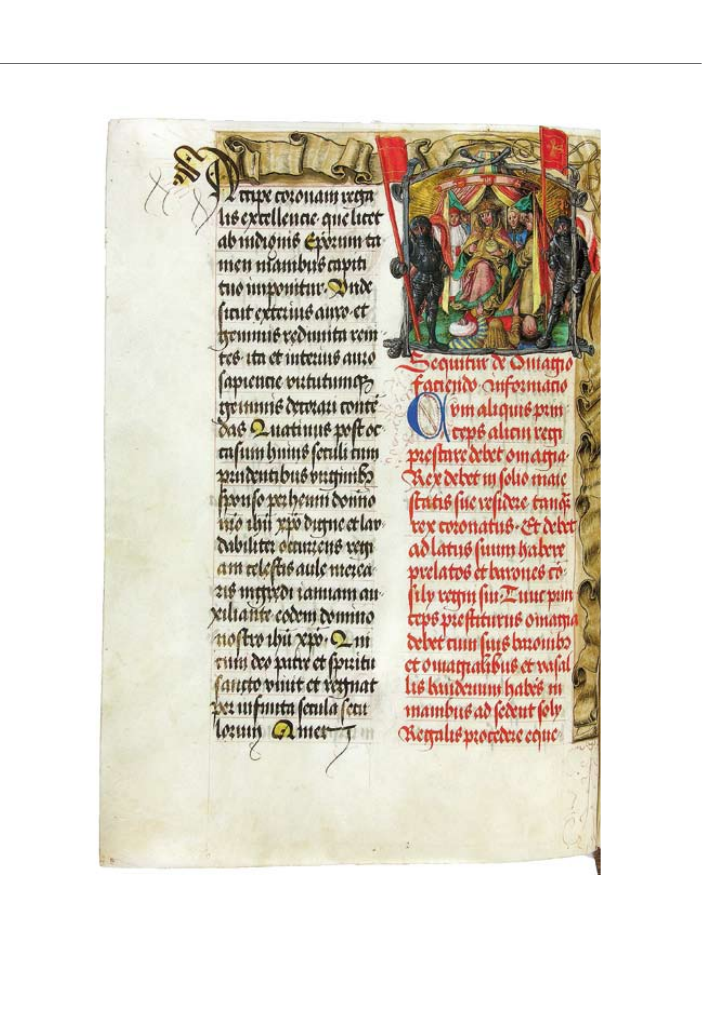 Accipe coronam rega
lis excellencie · que licet
ab indignis Eporum ta
men manibus capiti
tuo imponitur · Vnde
sicut exterius auro · et
gemmis redimita reni
tes · ita et interius auro
sapiencie virtutumqꝫ
gemmis decorari conte
das Quatinus post oc
casum huius seculi cum
prudentibus virginibꝫ
sponso perhenni domino
nro ihu xpo digne et lau
dabiliter occurrens regi
am celestis aule merea
ris ingredi ianuam au
xiliante · eodem domino
nostro ihu xpo · Qui
cum deo patre et spiritu
sancto viuit et regnat
per infinita secula secu
lorum Amen
Sequitur de Omagio
faciendo · informacio
Cvm aliquis prin
ceps alicui regi
prestare debet omagia ·
Rex debet in solio maie
statis sue residere · tanqꝫ
rex coronatus · Et debet
ad latus suum habere
prelatos et barones co
sily regni sui · Tunc prin
ceps prestiturus omagia
debet cum suis baronibꝫ
et omagialibus et vasal
lis banderium habes in
manibus ad sedem soly
Regalis procedere eque